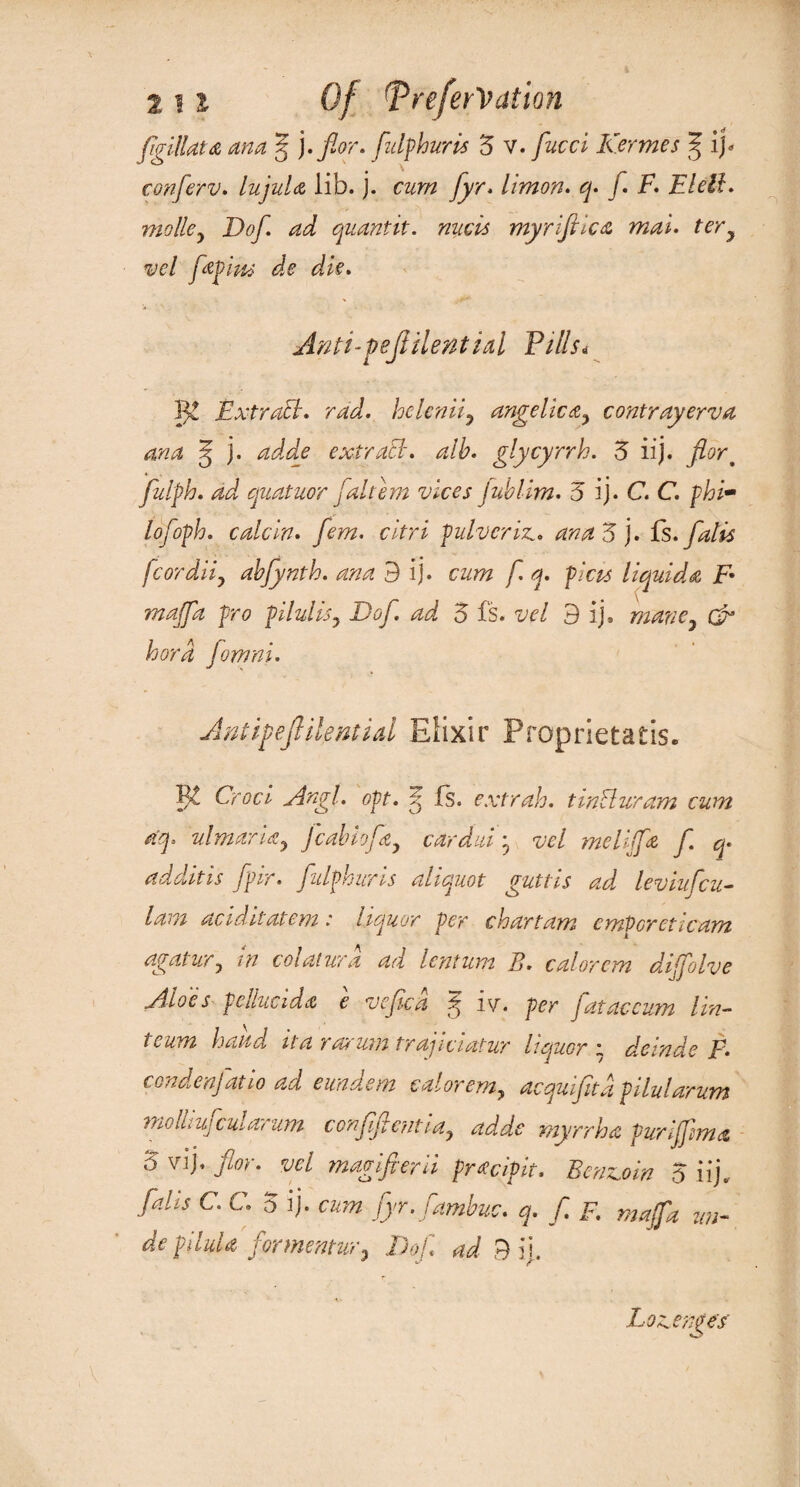 212 Of Preſervation
ſigillatæ ana ℥ j. flor. ſulphuris ʒ v. ſucci Kermes ℥ ij.
conſerv. lujulæ lib. j. cum ſyr. limon. q. ſ. F. Elect.
molle, Doſ. ad quantit. nucis myriſticæ mai. ter,
vel ſæpius de die.
Anti-peſtilential Pills.
℞ Extract. rad. helenii, angelicæ, contrayerva
ana ℥ j. adde extract. alb. glycyrrh. ʒ iij. flor.
ſulph. ad quatuor ſaltem vices ſublim. ʒ ij. C. C. phi-
loſoph. calcin. ſem. citri pulveriz. ana ʒ j. ſs. ſalis
ſcordii, abſynth. ana ℈ ij. cum ſ. q. picis liquidæ F.
maſſa pro pilulis, Doſ. ad ʒ ſs. vel ℈ ij. mane, &
horâ ſomni.
Antipeſtilential Elixir Proprietatis.
℞ Croci Angl. opt. ℥ ſs. extrah. tincturam cum
aq. ulmariæ, ſcabioſæ, cardui; vel meliſſæ ſ. q.
additis ſpir. ſulphuris aliquot guttis ad leviuſcu-
lam aciditatem: liquor per chartam emporeticam
agatur, in colaturâ ad lentum B. calorem diſſolve
Aloës pellucidæ è veſicâ ℥ iv. per ſataccum lin-
teum haud ita rarum trajiciatur liquor; deinde F.
condenſatio ad eundem calorem, acquiſitâ pilularum
molliuſcularum conſiſtentia, adde myrrhæ puriſſimæ
ʒ vij. flor. vel magiſterii præcipit. Benzoin ʒ iij.
ſalis C. C. ʒ ij. cum ſyr. ſambuc. q. ſ. F. maſſa un-
de pilulæ formentur, Doſ. ad ℈ ij.
Lozenges